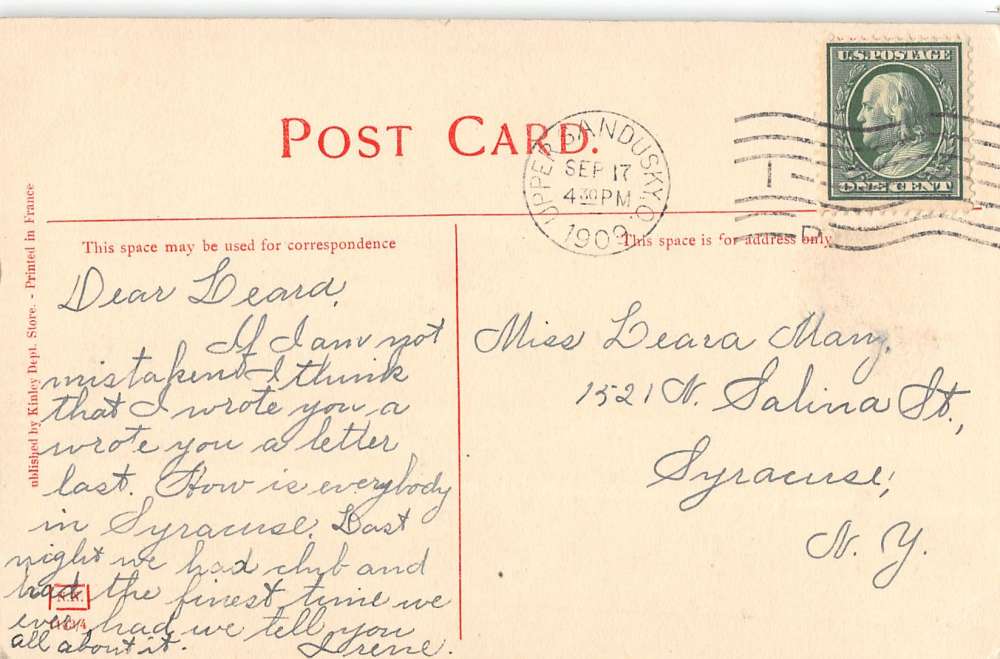 U.S. POSTAGE
ONE CENT
POST CARD.
UPPER SANDUSKY, O.
SEP 17
4 30 PM
1909
This space may be used for correspondence
This space is for address only
ublished by Kinley Dept. Store. - Printed in France
Dear Leard,
If I am not
mistaken I think
that I wrote you a
wrote you a letter
last. How is everybody
in Syracuse. Last
night we had club and
had the finest time we
ever had we tell you
all about it. Irene.
Miss Leara Many.
1521 N. Salina St.,
Syracuse,
N. Y.